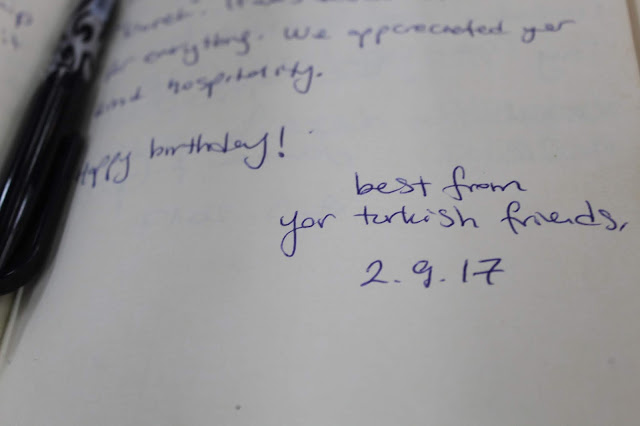 everything. We appcreceated yor
and hospitality.
Happy birthday!
best from
yor turkish friends,
2.9.17